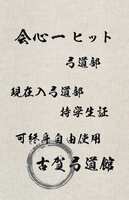 会心一ヒット
弓道部
現在入弓道部
持学生证
可终身自由使用
古贺弓道館